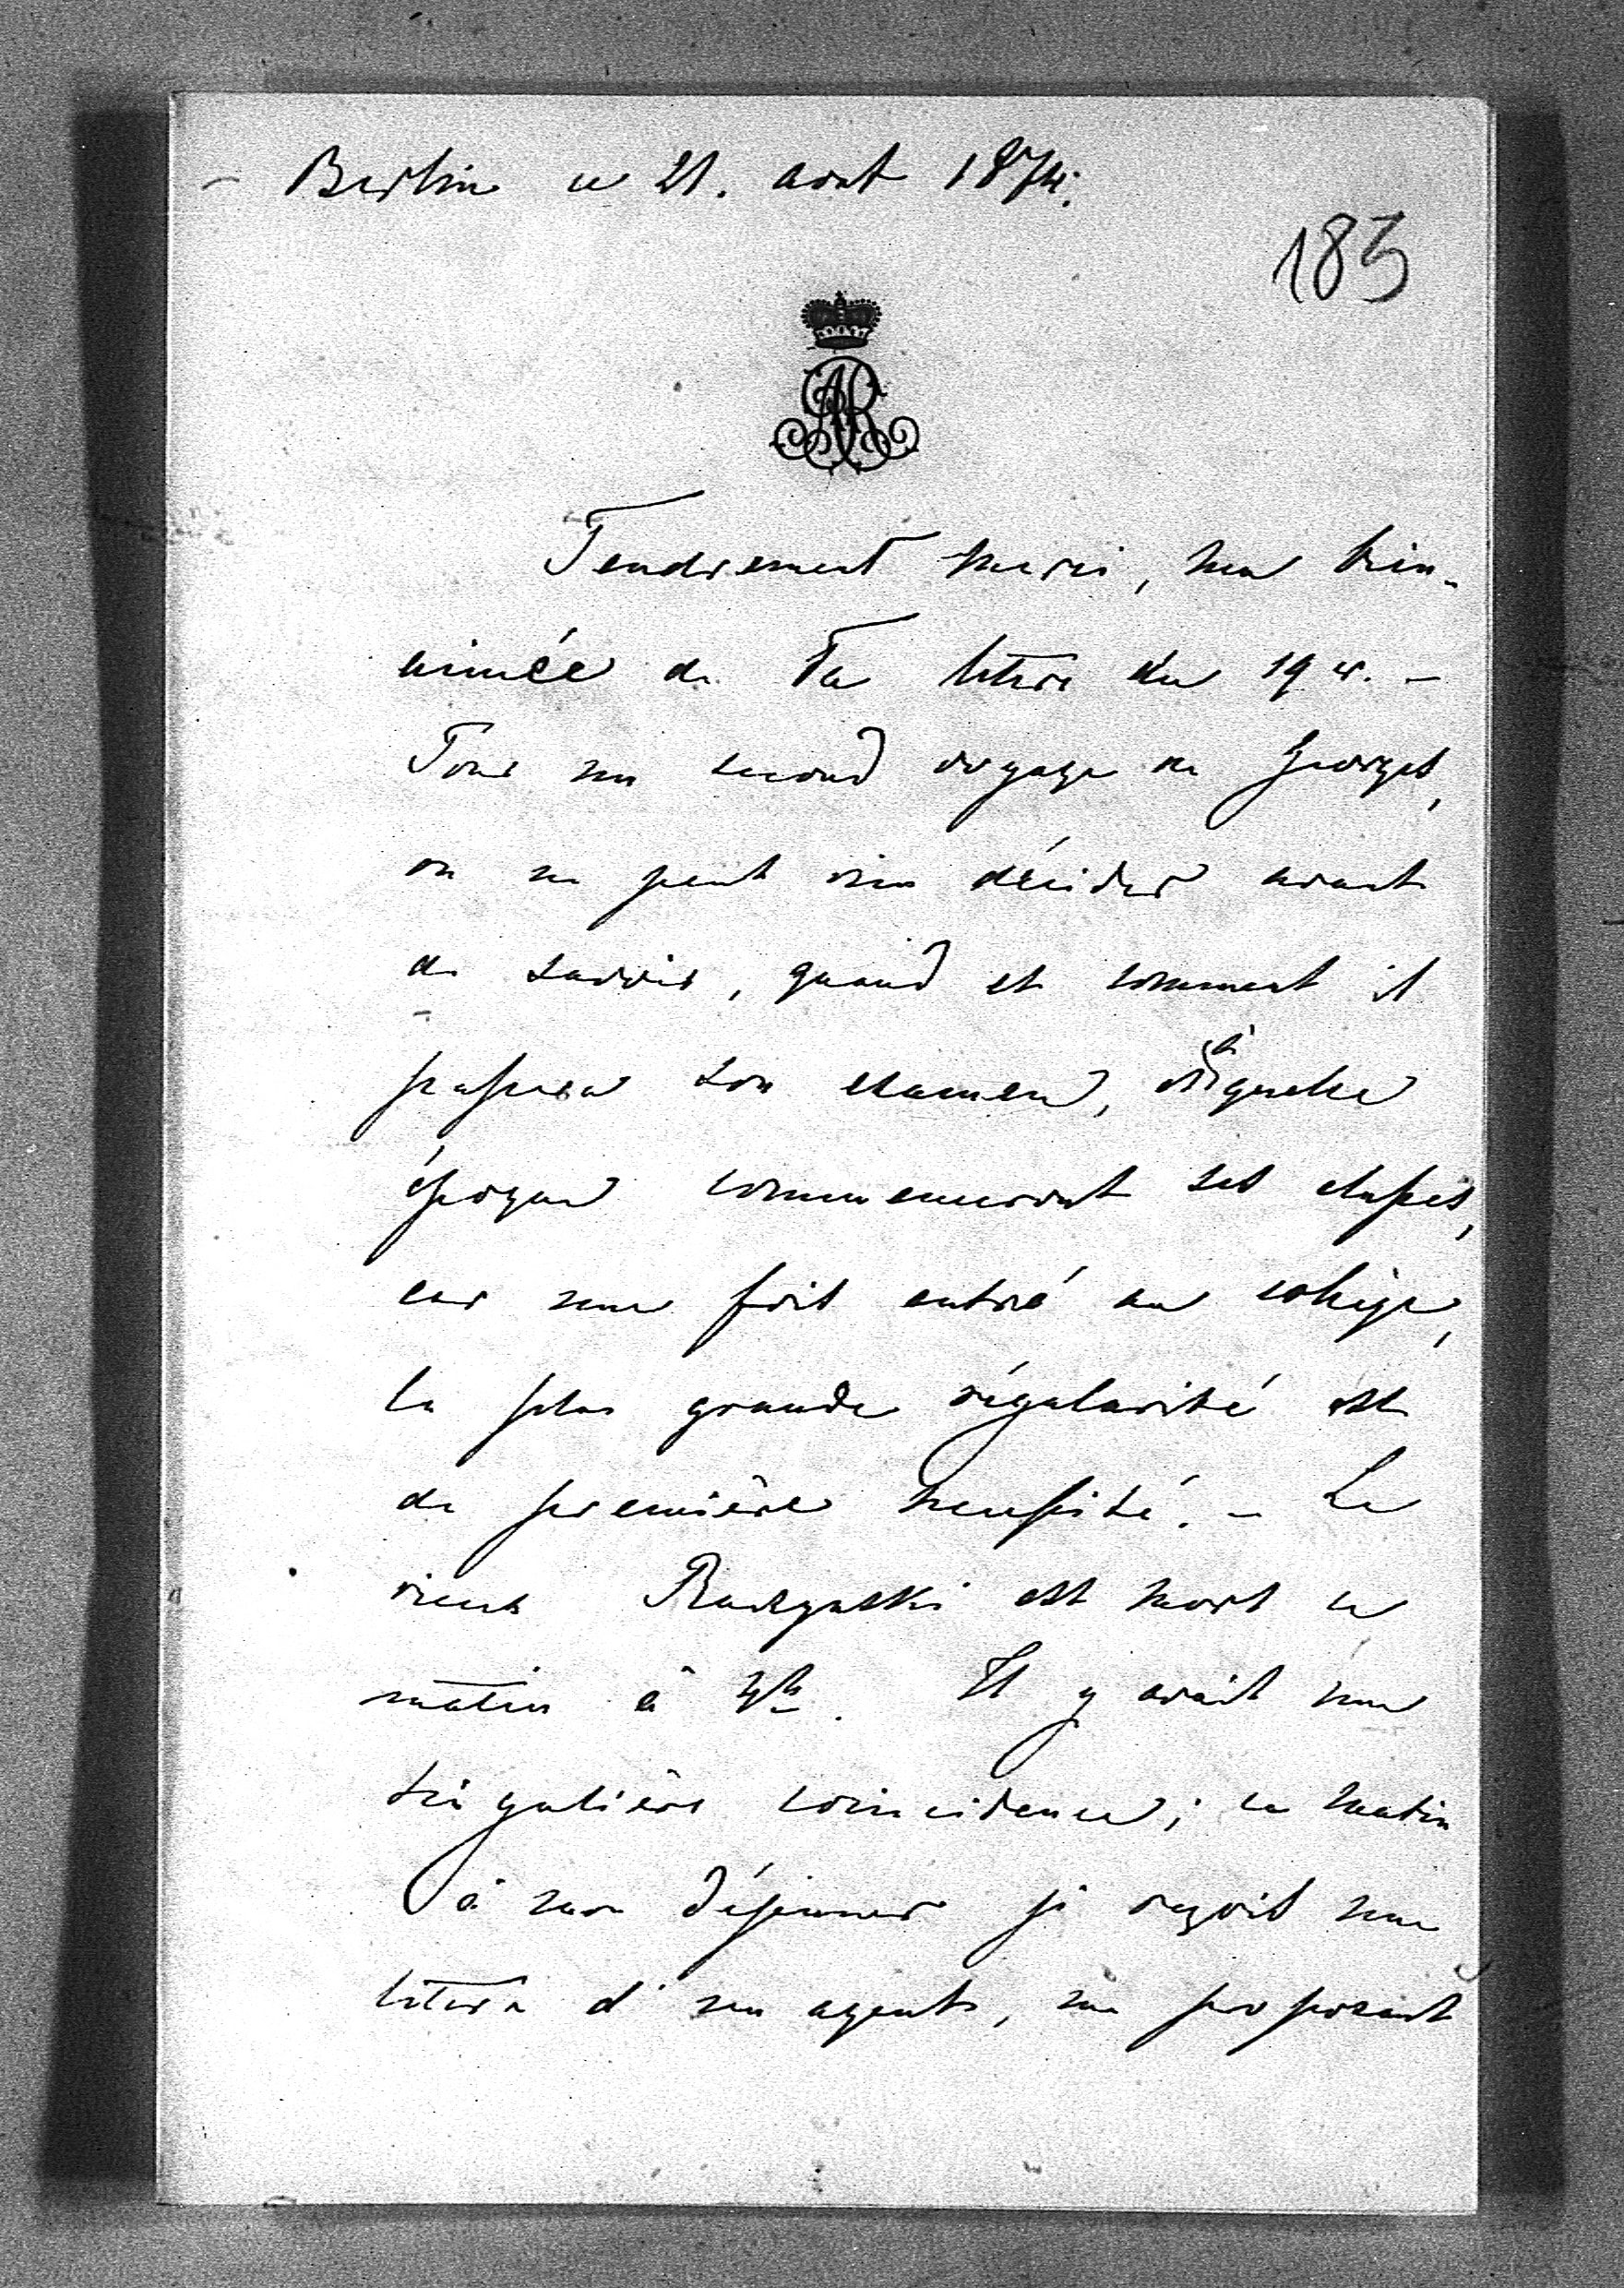 Berlin ce 21. aout 1874.
183
AR
Tendrement merci, ma bien-
aimée de Ta lettre du 19 cr. –
Pour un second voyage de Georges,
on ne peut rien décider avant
de savoir, quand et comment il
passera son examen, et à quelle
époque commenceront ses classes,
car une fois entré au collège,
la plus grande régularité est
de première necessité. – Le
vieux Raczynski est mort ce
matin à 4h. Il y avait une
singulière coincidence; ce matin
à mon déjeuner je reçois une
lettre d'un agent, me proposant